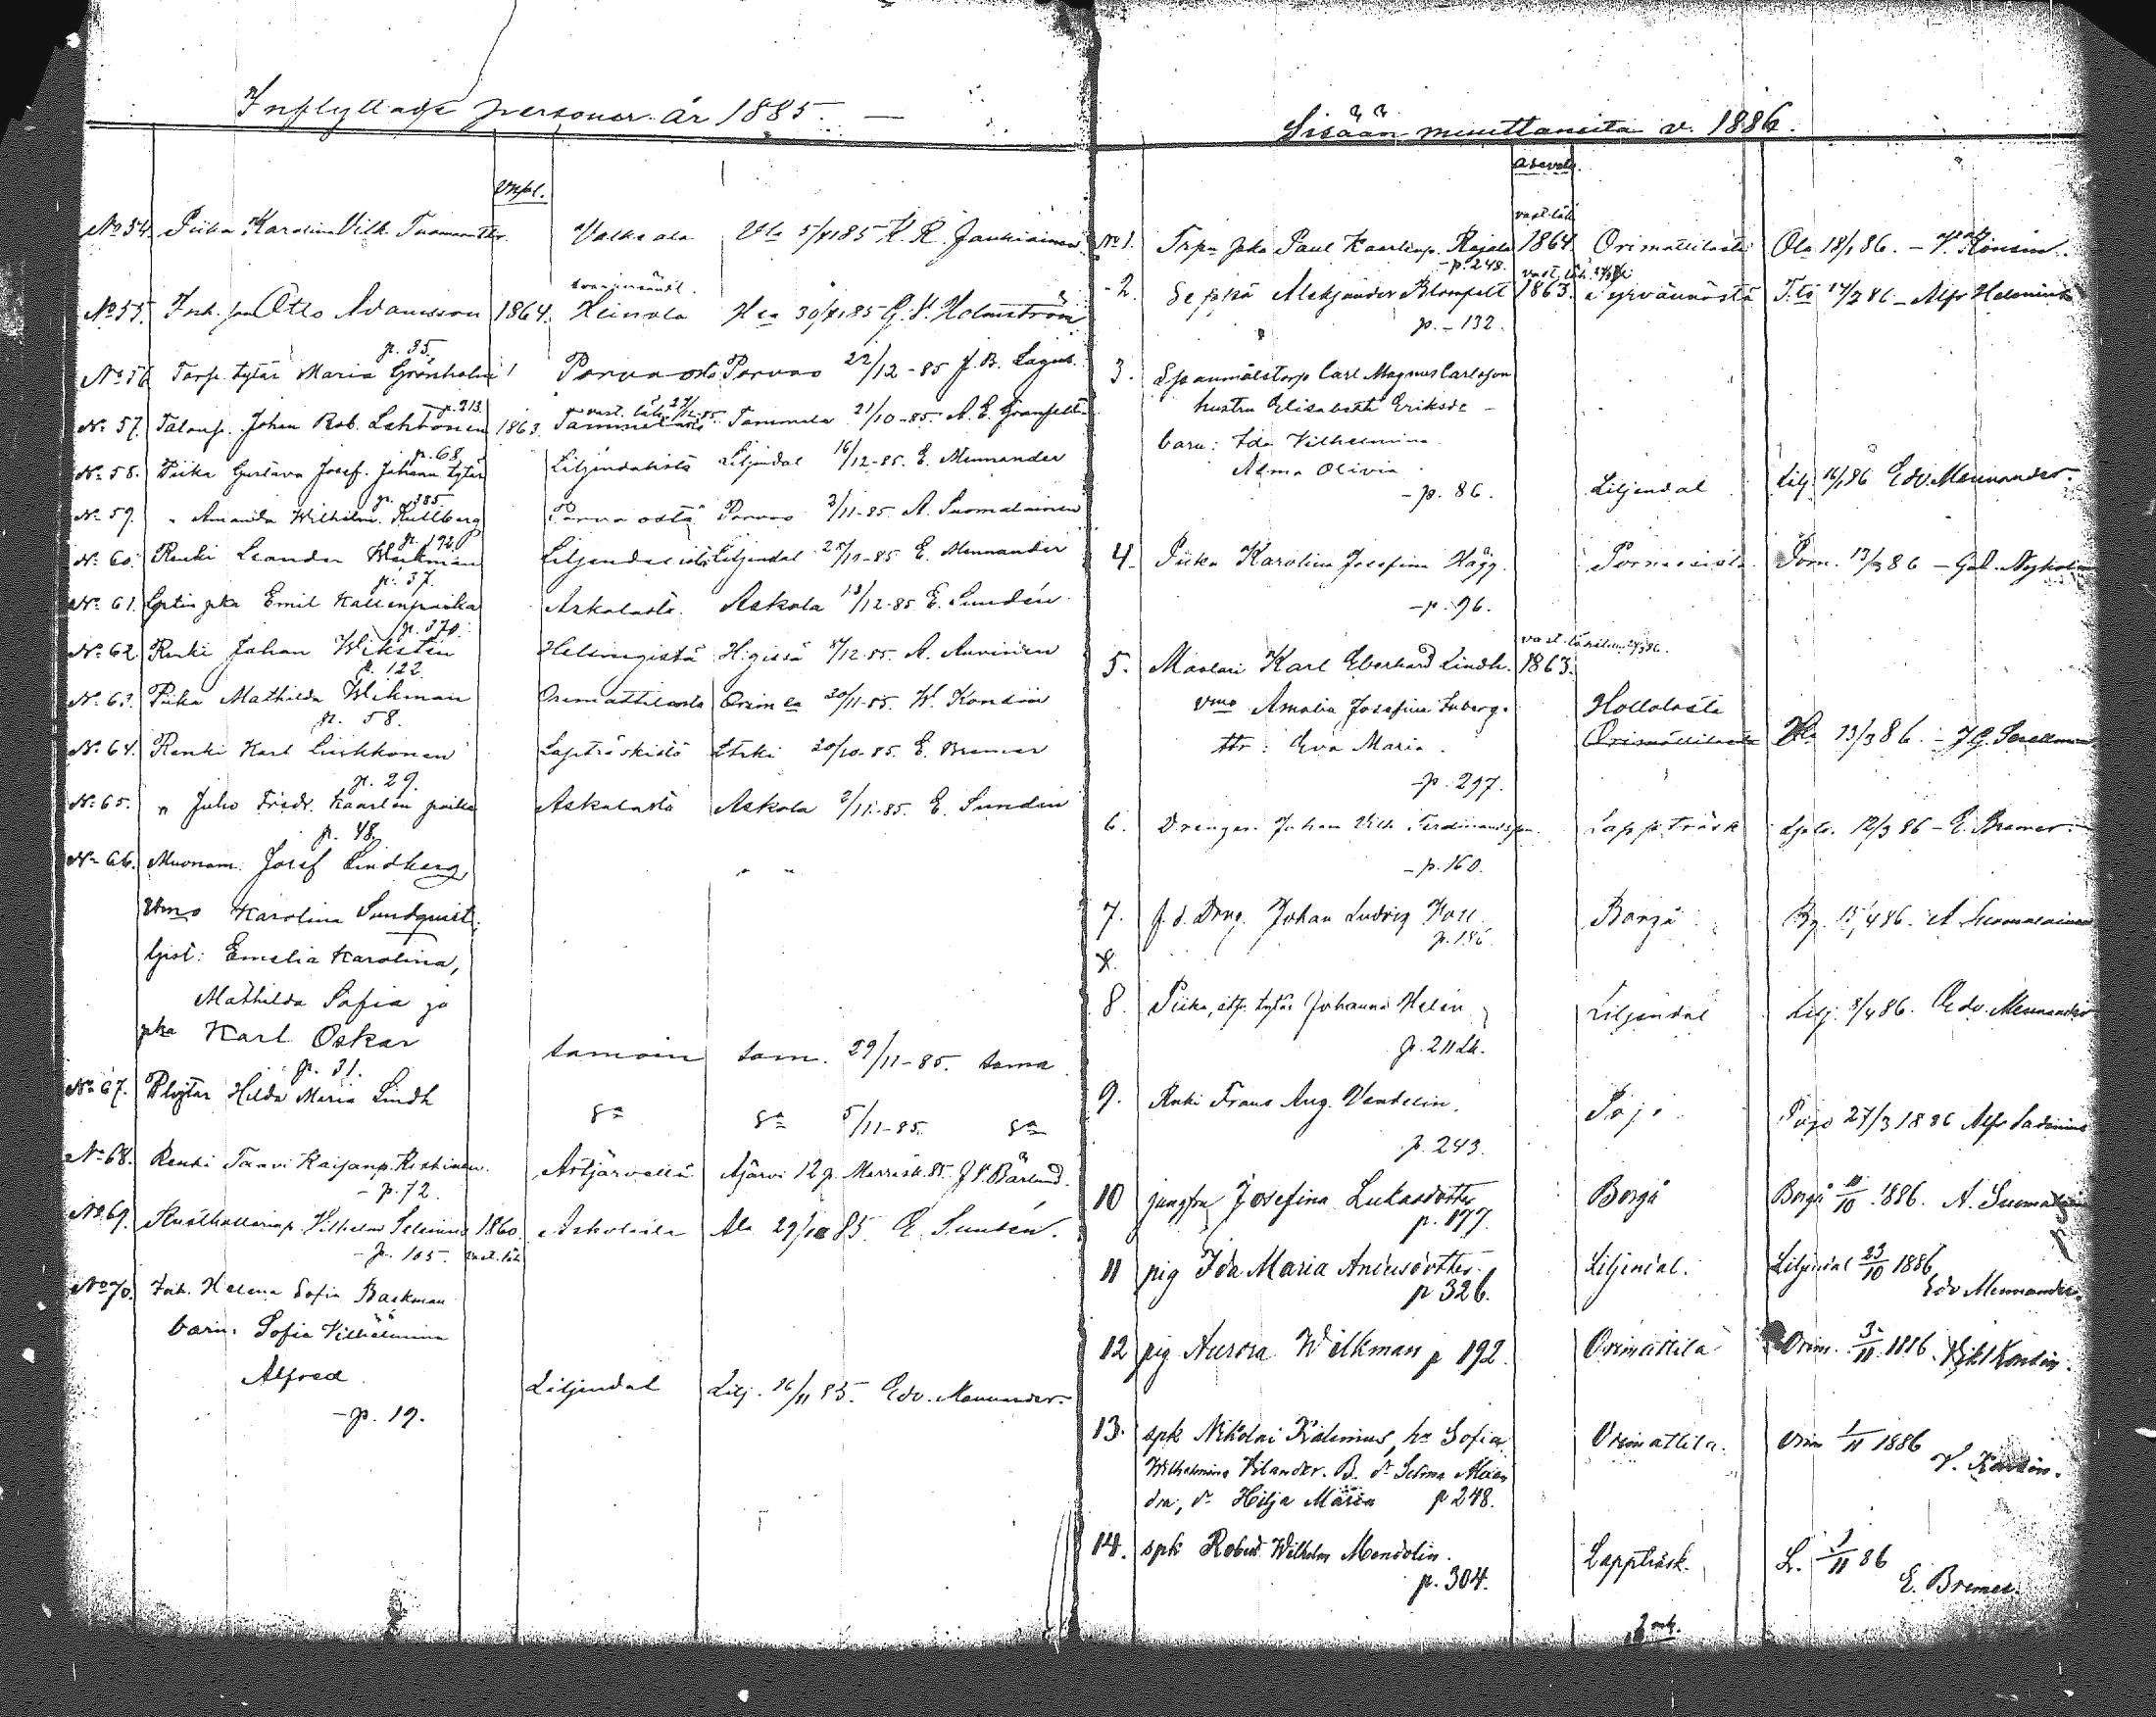 Inflyttade personer år 1885.
N:o 54. Piika Karolina Vilh. Tuomaantr. Valkeala Vla 5/ 85 K. R. Jaukiainen
N:o 55. Inh. Otto Adamsson 1864. Heinola Hla 30/ 85 G. V. Holmström
p. 35
N:o 56 Torp. tytär Maria Grönholm Porvoosta Porvoo 22/12-85 J. B. Lagus.
p. 213.
N:o 57. Talonp. Johan Rob. Lehtonen 1863 Tammelasta Tammela 21/10-85. A. E. Granfelt
p. 68
N:o 58. Piika Gustava Josef. Johann. tytär Liljendalistä Liljendal 16/12-85. E. Mennander
p. 385
N:o 59. " Amanda Wilhelm. Kullberg Porvoostä Porvoo 3/11-85. A. Suomalainen
p. 192
N:o 60. Renki Leander Wiikman Liljendalistä Liljendal 28/10-85 E. Mennander
p. 37.
N:o 61. pka Emil Kallenpoika Askolasta. Askola 13/12-85. E. Sundén
p. 370.
N:o 62. Renki Johan Wiksten Helsingistä H:gissä /12-85. A. Auvinen
p. 122.
N:o 63. Piika Mathilda Wikman Orimattilasta Orim:la 20/11-85. W. Konsin
p. 58.
N:o 64. Renki Karl Liukkonen Lapträskistä Ltrki 20/10-85. E. Bremer
p. 29.
N:o 65. " Juho Fredr. Kaarlen poika Askolasta Askola 2/11-85. E. Sundén
p. 48.
N:o 66. Muonam. Josef Lindberg " "
Vmo Karolina Sundquist.
lpset: Emelia Karolina,
Mathilda Sofia ja
pka Karl Oskar samoin sam. 29/11-85. sama
p. 31.
N:o 67. Hilda Maria Lindh S:a S:a 5/11-85. S:a
N:o 68. Renki Taavi Kaijanp. Koskinen. Artjärveltä Ajärvi 12 p. Marrask. 85. J. V. Bärlund.
- p. 72.
N:o 69. Rusthollarinp. Vilhelm Selenius 1860. Askolasta Ala 29/10 85. E. Sundén.
- p. 105.
N:o 70. Inh. Helena Sofia Backman
barn: Sofia Vilhelmina
Alfred. Liljendal Lilj. 26/11 85. Edv. Mennander.
- p. 19.
Sisään muuttaneita v. 1886.
N:o 1. Trp:n pka Paul Kaarlenp. Rajala 1864 Orimattilasta Ola 18/1 86. - V. Konsin.
- p. 248.
- 2. Seppä Aleksander Blomfelt 1863. Tyrväännöstä T:tö 14/2 86 - Alfr. Helenius
p. - 132.
3. Spannmålstorp. Carl Magnus Carlsson
hustru Elisabeth Eriksdr -
barn: Ida Vilhelmina
Alma Olivia.
- p. 86. Liljendal Lilj. 16/1 86 Edv. Mennander.
4. Piika Karolina Josefina Hägg. Pornaisista Porn. 13/3 86 - Gab. Nyholm
- p. 96.
5. Maalari Karl Eberhard Lindh. 1863.
vmo Amalia Josefina Inberg. Hollolasta
ttr: Eva Maria. Orimattilasta Hla 13/3 86. - J. G. Snellman
- p. 297.
6. Drängen Johan Vilh. Ferdinandsson. Lappträsk Lptr. 12/3 86 - E. Bremer.
- p. 160.
7. f. d. Dräng. Johan Ludvig Borgå Bg. 15/4 86. A. Suomalainen
p. 186.
8. Piika, tytär Johanna Helén Liljendal Lilj. 8/4 86. Edv. Mennander
p. 211
9. Renki Frans Aug. Vendelin. Pojo. Pojo 27/3 1886 Alfr.
p. 243.
10 jungfru Josefina Lukasdotter Borgå Borgå /10 1886. A. Suomalainen
p. 177.
11 pig Ida Maria Andersdotter. Liljendal. Liljendal 23/10 1886
p 326. Edv Mennander.
12 pig Aurora Wilkman p 192. Orimattila Orim. 3/11 1886. Konsin.
13. spk Nikolai Kalenius, h:u Sofia Orimattila. Orim 1/11 1886
Wilhelmina Vilander. B. d:r Selma V. Konsin.
dra, d:r Hilja Maria p 248.
14. spk Robert Wilhelm Mendolin. Lappträsk. L. 1/11 86
p. 304. E. Bremer.